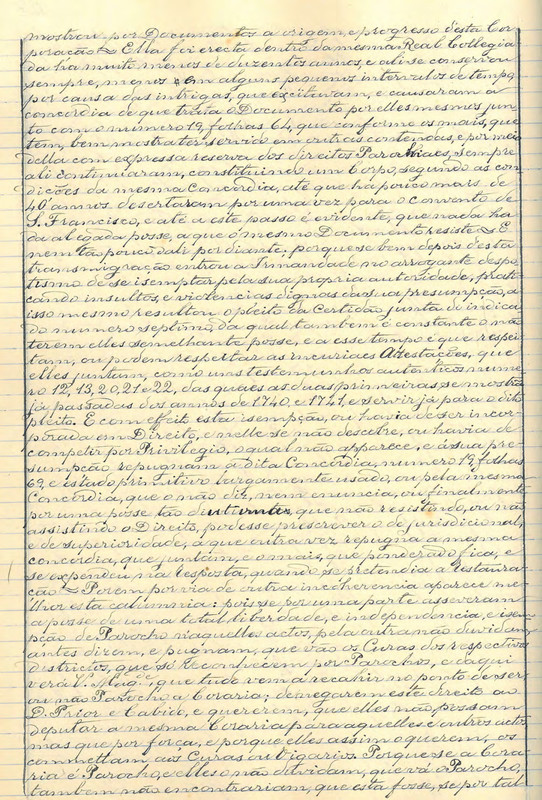 mostrou por Documentos a origem, e progresso d'esta Cor
poração. Ella foi erecta dentro da mesma Real Collegia
da há muito menos de duzentos annos, e ali se conservou
sempre, menos em alguns pequenos intervalos de tempo,
por causa das intrigas, que excitavam, e causaram a
concordia de que trata o Documento por elles mesmos jun
to com o numero 19, folhas 64, que conforme os mais, que
tem, bem mostra ter servido em outras contendas, e por meio
d'ella com expressa reserva dos direitos Parochiaes, sempre
ali continuaram, constituindo um Corpo, segundo as con
dicões da mesma Concordia, até que há pouco mais de
40 annos desertaram por uma vez para o convento de
S. Francisco, e até a este passo é evidente, que nada ha
da alegada posse, a que o mesmo Documento resiste. E
nem tão pouco d'ali por diante, porque se bem depois d'esta
transmigração entrou a Irmandade no arrogante despo
tismo de se isemptar pela sua propria autoridade, prati
cando insultos, e violencias dignas da sua presumpção, a
isso mesmo resultou o pleito da Certidão junta do indica
do numero septimo, da qual tambem é constante o não
terem elles semelhante posse, e a esse tempo é que respei
tam, ou podem respeitar as incuriaes Attestações, que
elles juntam, como uns testemunhos autenticos nume
ro 12, 13, 20, 21 e 22, das quaes as duas primeiras se mostra
já passadas dos annos de 1740, e 1741, e servir já para o dito
pleito. E com effeito esta isempção, ou havia de ser incor
porada em Direito, e nelle se não descobre, ou havia de
competir por Privilegio, o qual não apparece, e á sua pre
sumpção repugnam a dita Concordia, numero 19, folhas
69, e estado primitivo largamente usado, ou pela mesma
Concordia, que o não diz, nem enuncia, ou finalmente
por uma posse tão diuturna, que não resistindo, ou não
assistindo o Direito, podesse prescrever o de jurisdicional,
e de superioridade, a que outra vez repugna a mesma
concordia, que juntam, e o mais, que ponderado fica, e
se expendeu na resposta, quando se pretendia a Restaura
ção. Porem por via de outra incoherencia aparece me
lhor esta calumnia: pois se por uma parte asseveram
a posse de uma total liberdade, e independencia, e isem
pção de Parocho n'aquelles actos, pela outra não duvidam,
antes dizem, e pugnam, que vão os Curas dos respectivos
destrictos, que só reconhecem por Parochos, e d'aqui
verá V. Mag.de, que tudo vem a recahir no ponto de ser
ou não Parocho a Coraria; denegarem este direito ao
D. Prior e Cabido, e quererem, que elles não possam
deputar a mesma Coraria para aquelles e outros actos
mas que por força, e porque elles assim o querem, os
commettam aos Curas ou Vigarios. Porque se a Cora
ria é Parocho, e elles o não duvidam, que vá o Parocho,
tambem não encontrariam, que esta fosse, se por tal